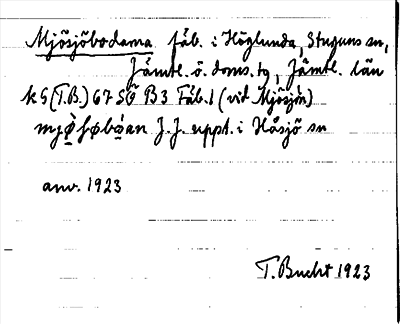 Mjösjöbodarna fäb. i Höglunda, Stuguns sn,
Jämtl. ö. doms. tg, Jämtl. län
k5 (T.B.) 67 SÖ B3 Fäb.1 (vid Mjösjön)
J.J. uppt. i Håsjö sn
anv. 1923
T. Bucht 1923